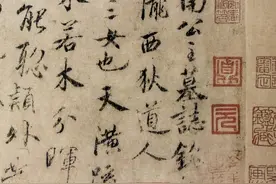 南公主墓誌銘
隴西狄道人
三女也天潢
若木分暉
能聰穎外